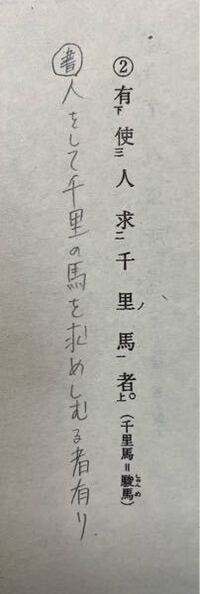 ②有下使三人求二千里ノ馬一者上。(千里馬＝駿馬しゅんめ)
書 人をして千里の馬を求めしむる者有り